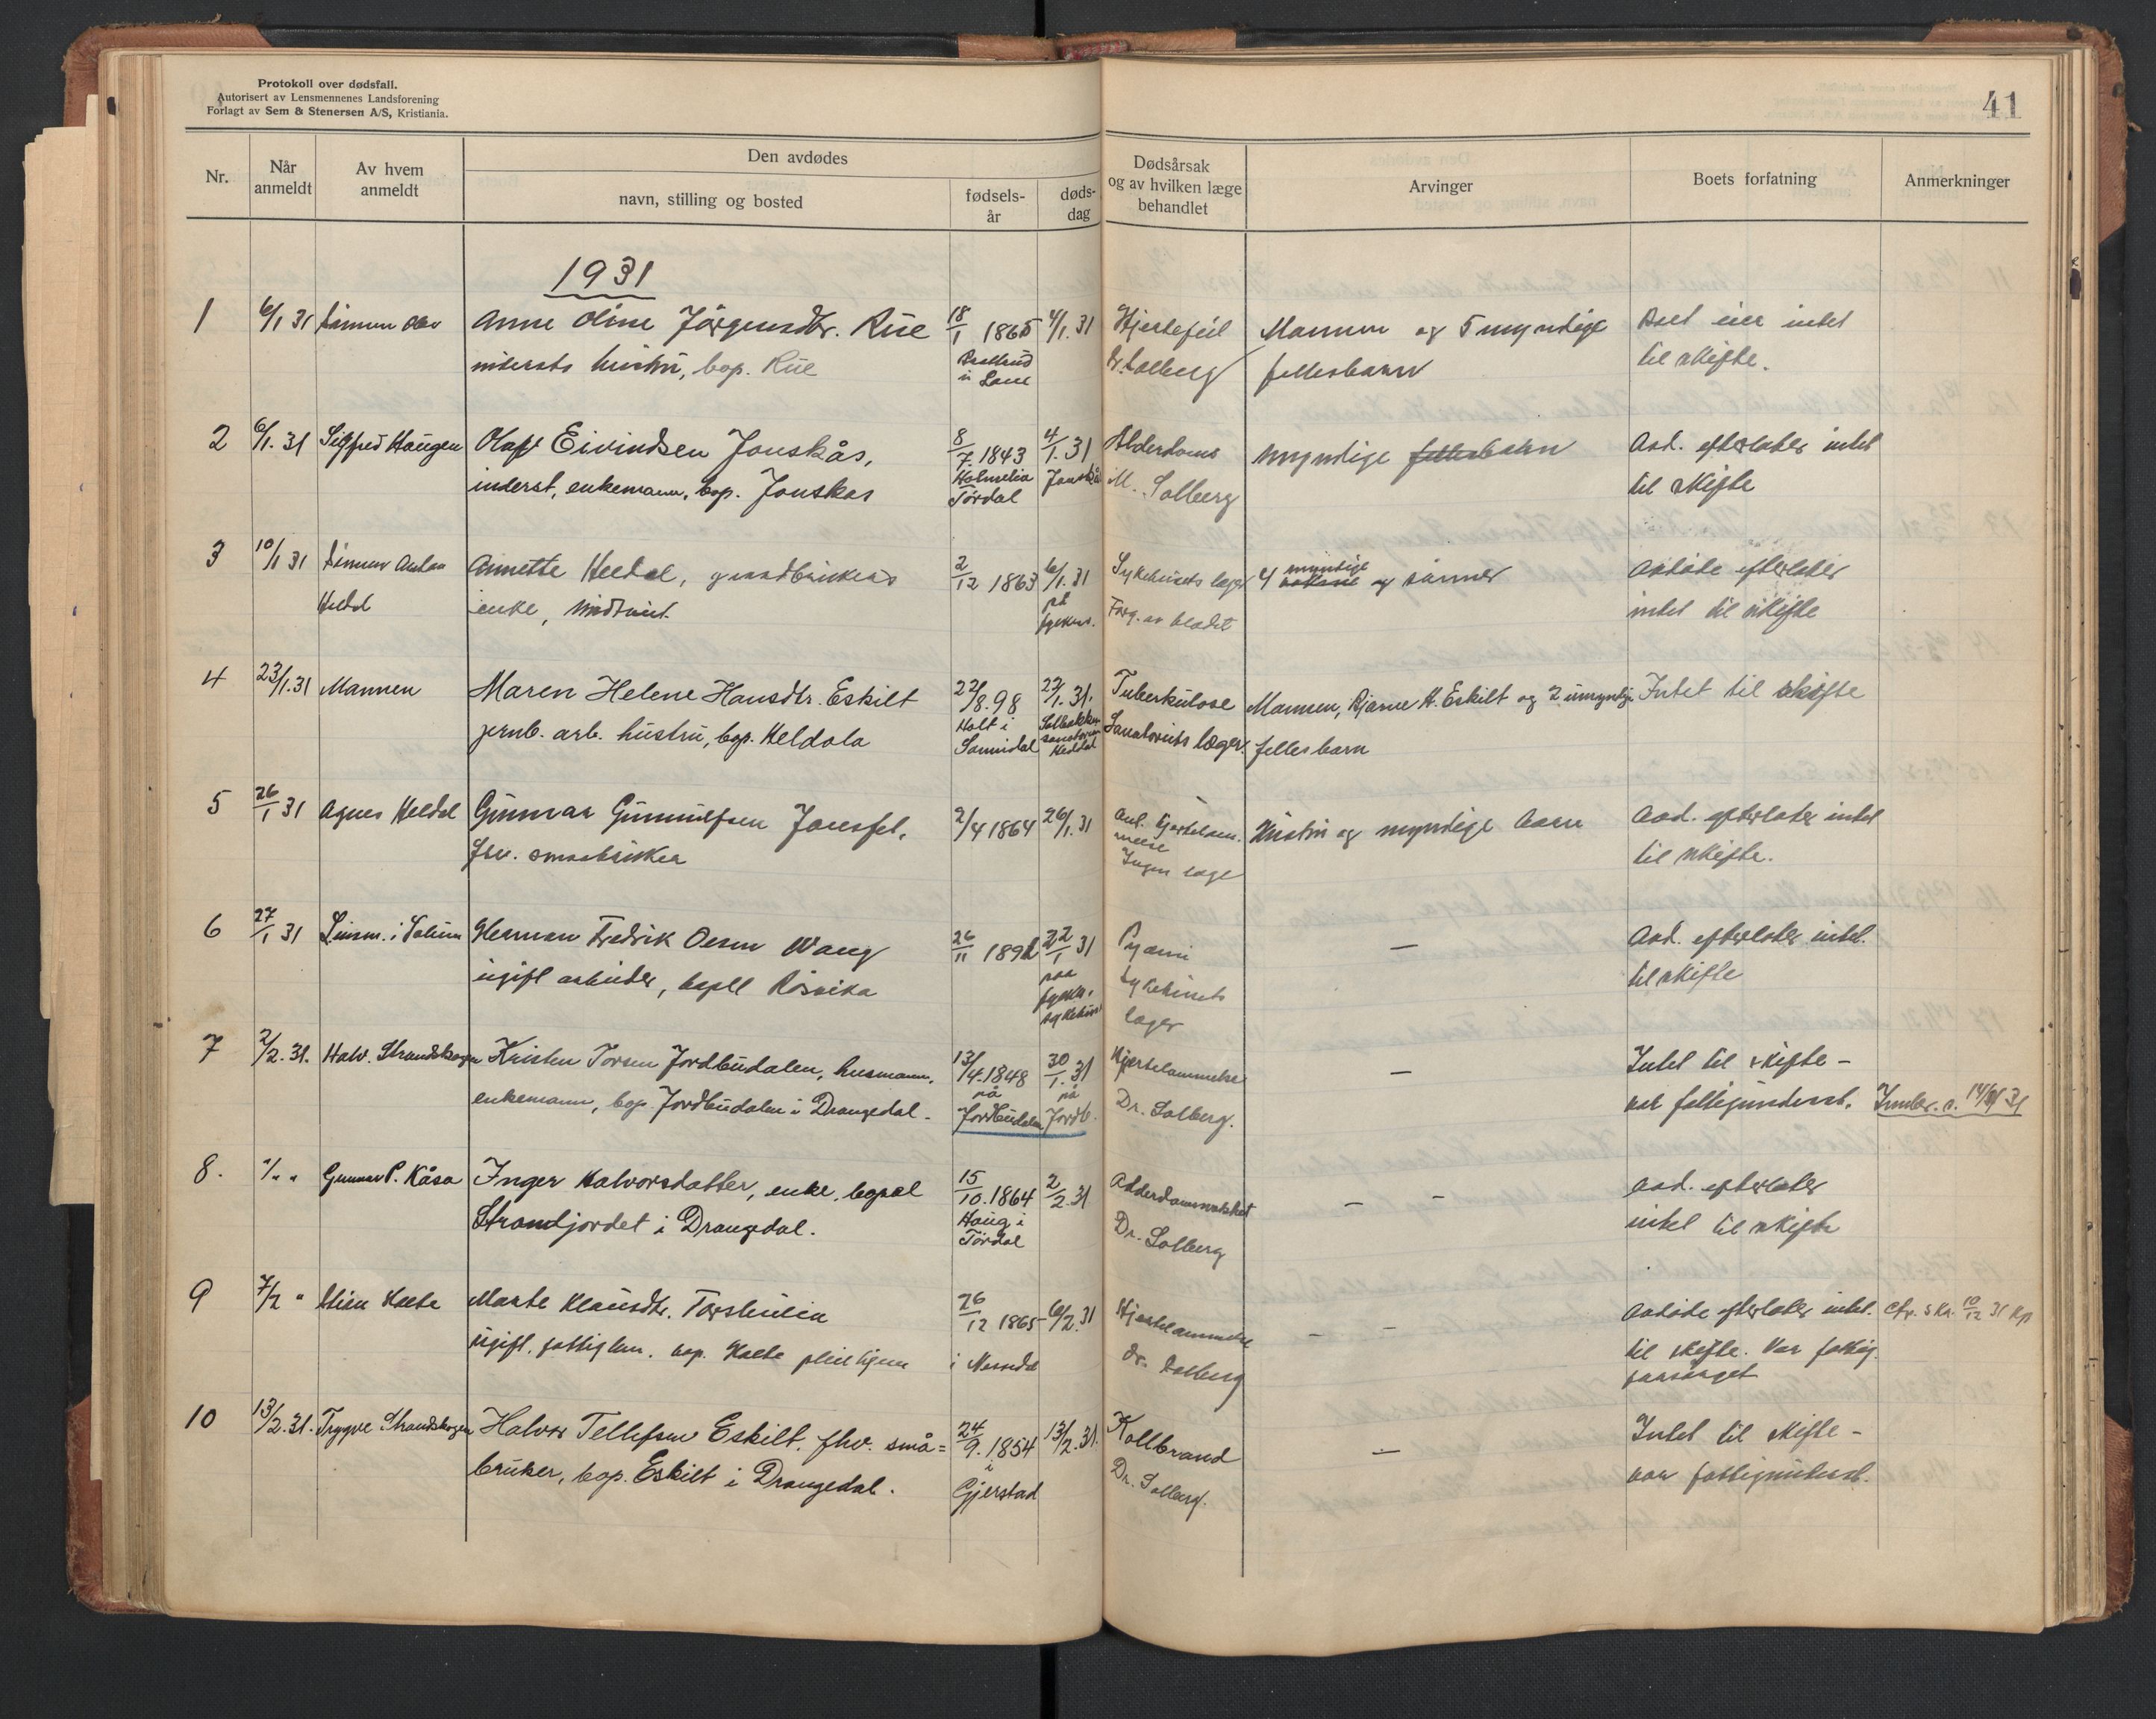 Protokoll over dødsfall.
Autorisert av Lensmennenes Landsforening
Forlagt av Sem & Stenersen A/S, Kristiania.
41
Nr.
Når anmeldt
Av hvem anmeldt
Den avdødes
navn, stilling og bosted
fødsels-år
døds-dag
Dødsårsak og av hvilken læge behandlet
Arvinger
Boets forfatning
Anmerkninger
1931
1 6/1 31 Anne Oline Jörgensdtr. Rue 18/1 1865 4/1. 31 Hjertefeil Mannen og 5 myndige Boet eier intet
inderts hustru, bop. Rue dr. Solberg fellesbarn til skifte.
2 6/1. 31 Sigfred Haugen Olaf Eivindsen Jonskås, 8/7. 1843 4/1. 31 Alderdoms myndige fellesbarn Avd. efterlater intet
inderst, enkemann, bop. Jonskås Tördal Jonskås Solberg til skifte
3 10/1 31 Annette Heldal, gaardbrukers 2/12 1863 6/1. 31 Sykehusets læger 4 myndige sønner Avdøde efterlater
enke, på sykehus. Forg. av blodet intet til skifte
4 23/1. 31 Mannen Maren Helene Hansdtr. Eskilt 22/8. 98 22/1. 31. Tuberkulose Mannen, Bjarne H. Eskilt og 2 umyndige Intet til skifte
jernb. arb. hustru, bop. Heldala Holt i Sannidal sanatorium Heddal Sanatoriets læger. fellesbarn
5 26/1 31 Agnes Heldal Gunnar Gunnulfsen Jonsfel. 2/4 1864 26/1. 31 Ant. hjertelammelse Hustru og myndige barn Avd. efterlater intet
fhv. smaabruker Ingen læge til skifte.
6 27/1 31 Lensm. i Solum Herman Fredrik Olsen Wang 26/11 1892 22/1 31 Pyæmi — Avd. efterlater intet.
ugift arbeider, bopell Rösvika paa sykehus Sykehusets læger til skifte
7 2/2. 31. Halv. Strandskogen Kristen Torsen Jordbudalen, husmann, 13/4. 1848 30/1. 31 Hjertelammelse — Intet til skifte -
enkemann, bop. Jordbudalen i Drangedal. på Jordbudalen på Jordb. Dr. Solberg. var fattigunderst. 14/4 31
8. "/" " Gunnar P. Kåsa Inger Halvorsdatter, enke, bopæl 15/10. 1864 2/2. 31 Alderdomssvakhet — - Avd. efterlater
Stramfjordet i Drangedal. Haug i Tördal Dr. Solberg intet til skifte
9 7/2 " Marte Klausdtr. Torsholia 26/12 1865 6/2. 31 Hjertelammelse — - Avdöde efterlater intet. 10/12 31
ugift. fattiglem. bop. i dr. Solberg til skifte. Var fattig
10 13/2. 31. Trygve Strandskogen Halvor Tellefsen Eskilt, fhv. små= 24/9. 1854 13/2. 31. Kollbrand — Intet til skifte -
bruker, bop. Eskilt i Drangedal. i Gjerstad Dr. Solberg. var fattigunderst.